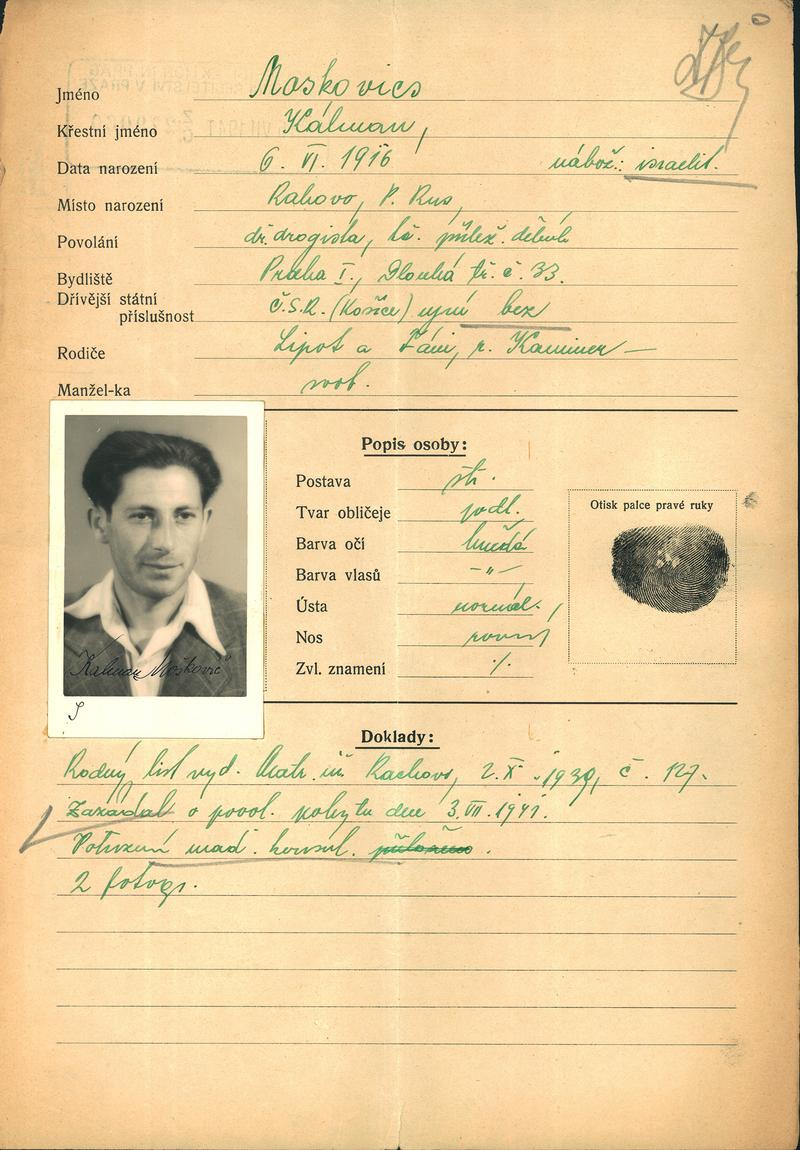 Jméno Moskovics
Křestní jméno Kálman,
Data narození 6. VI. 1916 nábož.: israelit.
Místo narození Rahovo, P. Rus,
Povolání dř. drogista, tč. přílež. dělník
Bydliště Praha I., Dlouhá tř. č. 33.
Dřívější státní
příslušnost Č.S.R. (Košice) nyní bez
Rodiče Lipot a Fáni, r. Kaminer —
Manžel-ka svob.
Popis osoby:
Postava stř.
Tvar obličeje podl.
Barva očí hnědá
Barva vlasů -"-
Ústa normál.,
Nos rovný
Zvl. znamení ./.
Otisk palce pravé ruky
Kalman Moškovič
Doklady:
Rodný list vyd. Matr. úř. Rachovo, 2. X. 1939, č. 127.
Zažádal o povol. pobytu dne 3. VII. 1941.
Potvrzení maď. konsul. přiloženo.
2 fotogr.